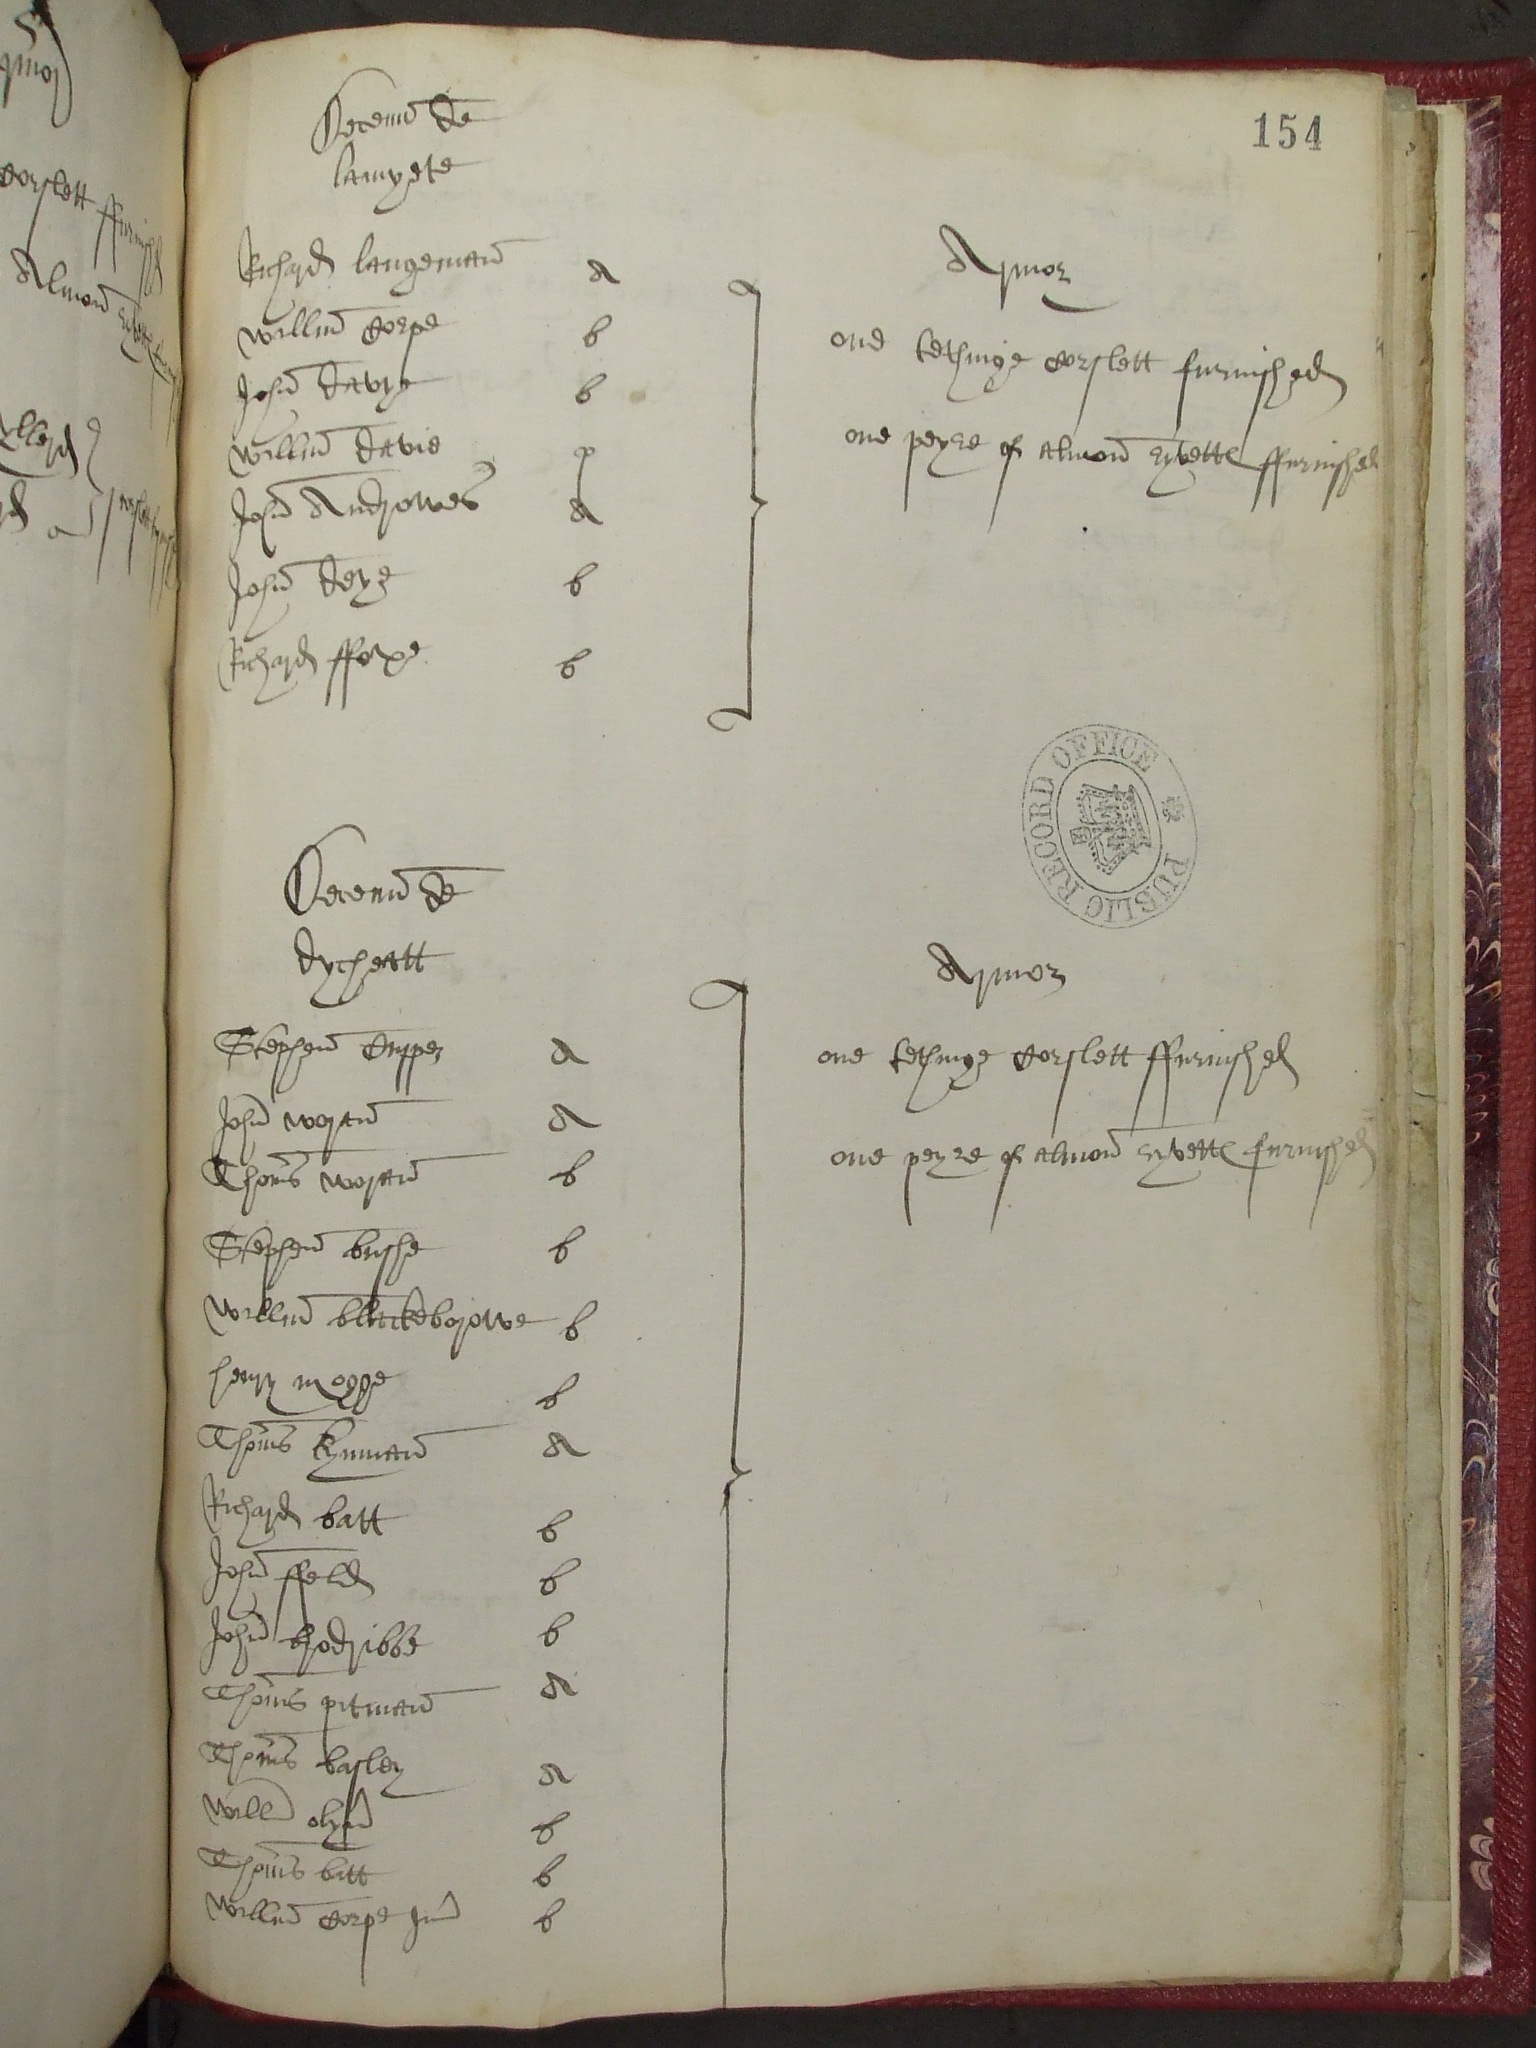 154
Decenn de
lamyete
Richard langeman a
Willm Corpe b
John Davye b
Willm Davie p
John Androwes a
John Deye b
Richard ffoxe b
Armor
one tethinge corslett furnished
one peyre of almon ryvette ffurnished
PUBLIC RECORD OFFICE
Decenn de
dycheatt
Stephen a
John Woran a
Thoms Woran b
Stephen bushe b
Willm blackeborowe b
henry mogge b
Thoms kynman a
Richard batt b
John ffeld b
John brodribbe b
Thoms pitman a
Thoms basley a
Willm b
Thoms batt b
Willm Corpe Jun b
Armor
one tethinge corslett ffurnished
one peyre of almon ryvette furnished
corslett ffurnished
Almon